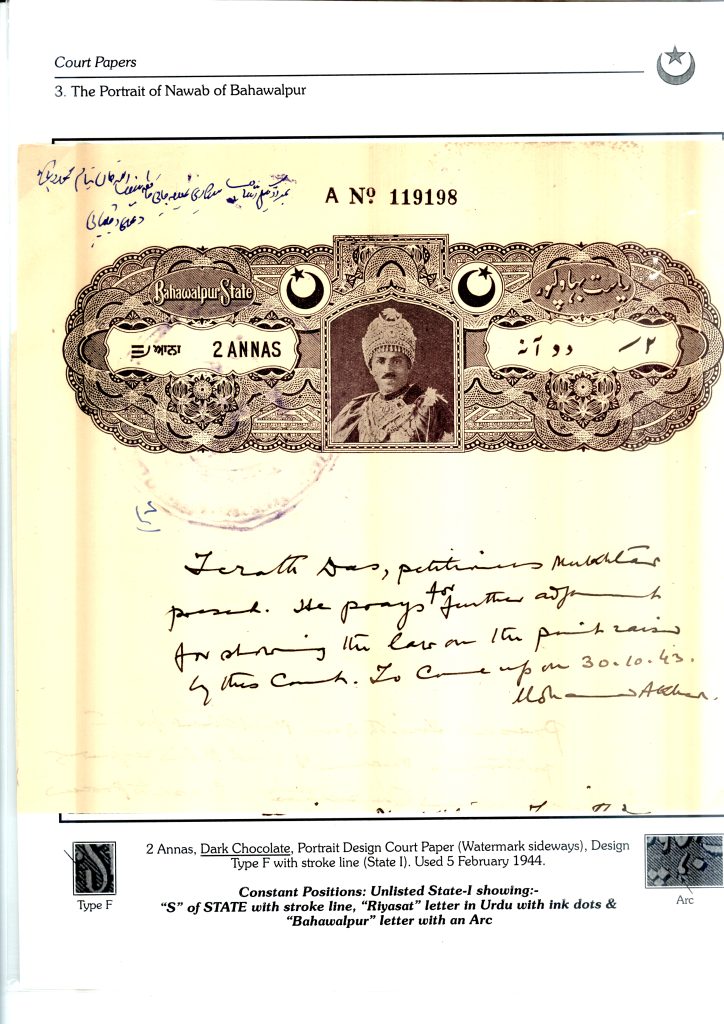 Court Papers
3. The Portrait of Nawab of Bahawalpur
A Nº 119198
Bahawalpur State
ریاست بہاولپور
ਆਨਾ 2 ANNAS
دو آنہ ۲/
Terath Das, petitioners Mukhtar
present. He prays for further adjournment
for showing the law on the point raised
by this Court. To Come up on 30.10.43.
Mohammad Akbar.
2 Annas, Dark Chocolate, Portrait Design Court Paper (Watermark sideways), Design
Type F with stroke line (State I). Used 5 February 1944.
Constant Positions: Unlisted State-I showing:-
“S” of STATE with stroke line, “Riyasat” letter in Urdu with ink dots &
“Bahawalpur” letter with an Arc
Type F
Arc